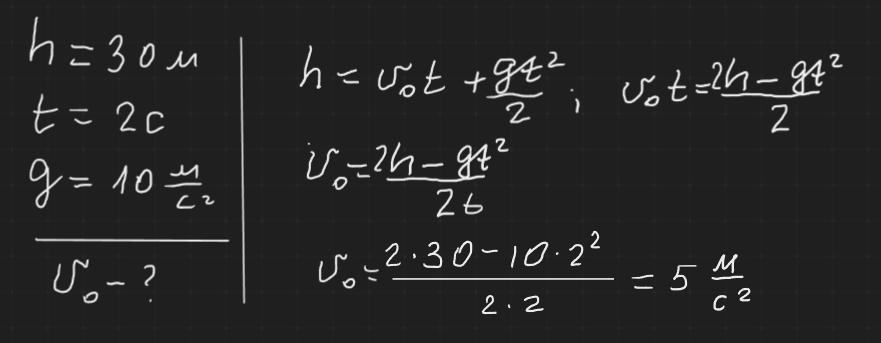 h = 30 м
t = 2с
g = 10 м/с²
v₀ - ?
h = v₀t + gt²/2; v₀t = 2h - gt²/2
v₀ = 2h - gt²/2t
v₀ = 2·30 - 10·2²/2·2 = 5 м/с²